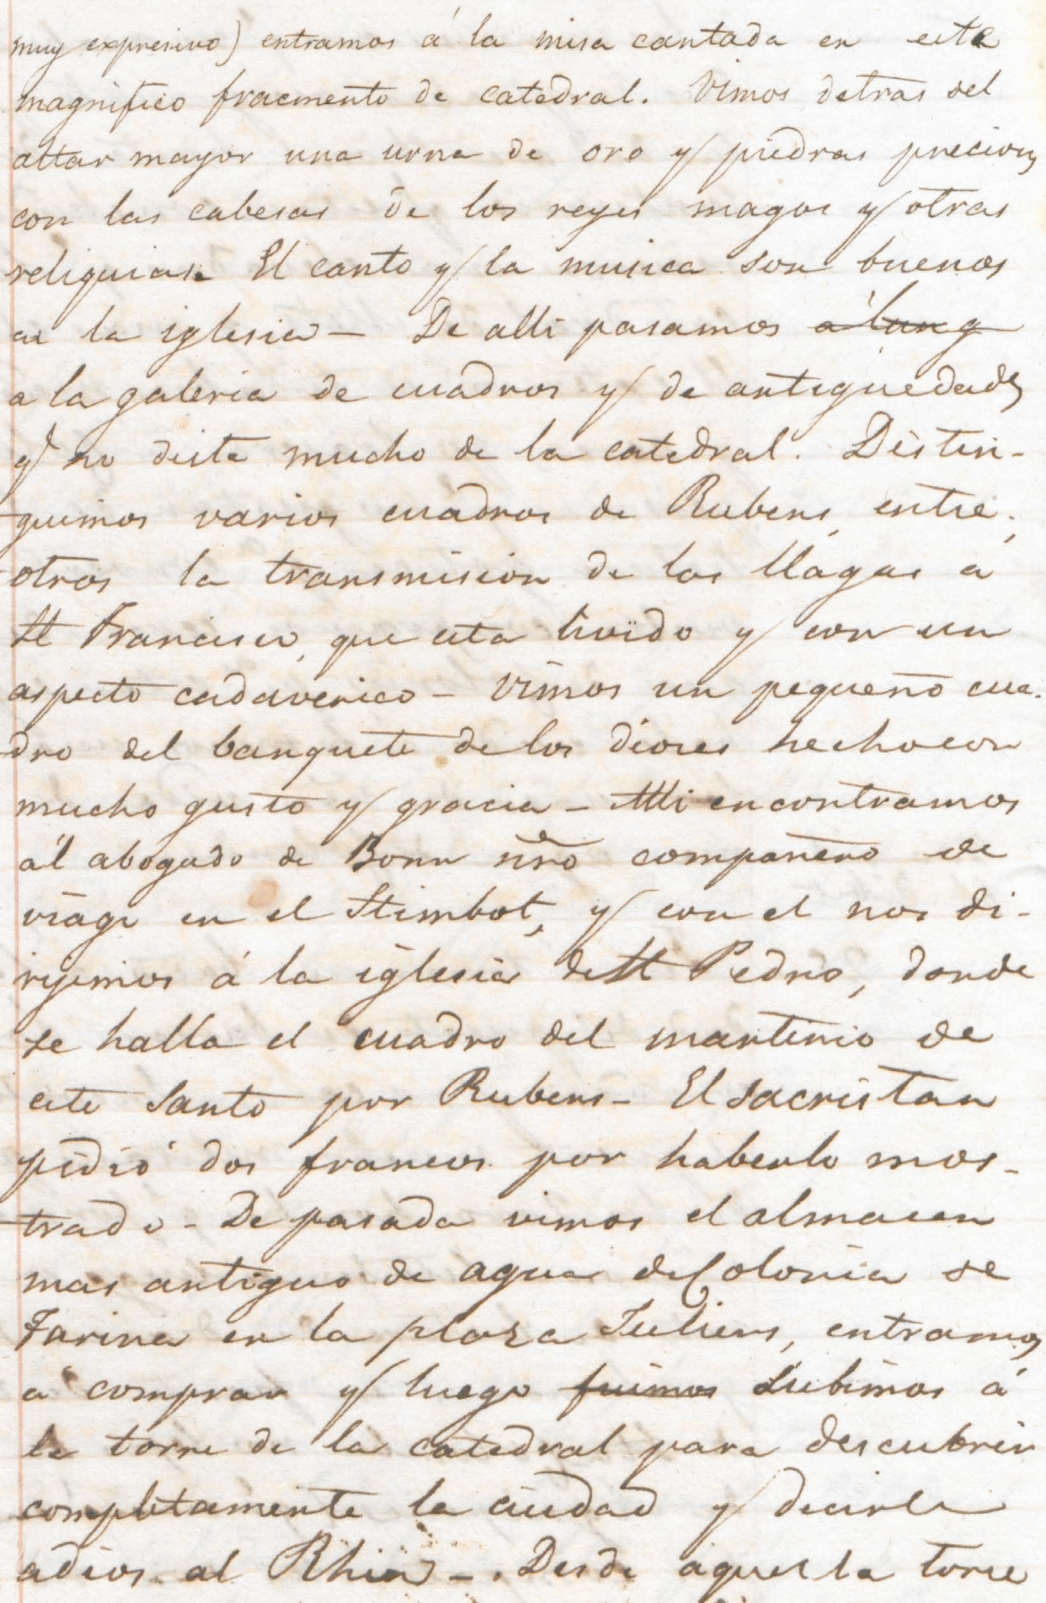 muy expresivo) entramos á la misa cantada en este
magnifico fracmento de catedral. Vimos detras del
altar mayor una urna de oro y piedras preciosas
con las cabesas de los reyes magos y otras
reliquias. El canto y la musica son buenos
en la iglesia - De alli pasamos
a la galeria de cuadros y de antiguedades
q no dista mucho de la catedral. Distin-
guimos varios cuadros de Rubens, entre
otros la transmision de las llagas a
St Francisco, que esta livido y con un
aspecto cadaverico - Vimos un pequeño cua-
dro del banquete de los dioses hecho con
mucho gusto y gracia - Alli encontramos
ál abogado de Bonn nro compañero de
viage en el Stimbot, y con el nos di-
rijimos á la iglesia de St Pedro, donde
se halla el cuadro del martirio de
este Santo por Rubens - El sacristan
pidió dos francos por haberlo mos-
trado - De pasada vimos el almacen
mas antiguo de agua de Colonia de
Farina en la plaza Juliers, entramos
a comprar y luego fuimos subimos á
la torre de la catedral para descubrir
completamente la ciudad y decirle
adios al Rhin -. Desde aquella torre